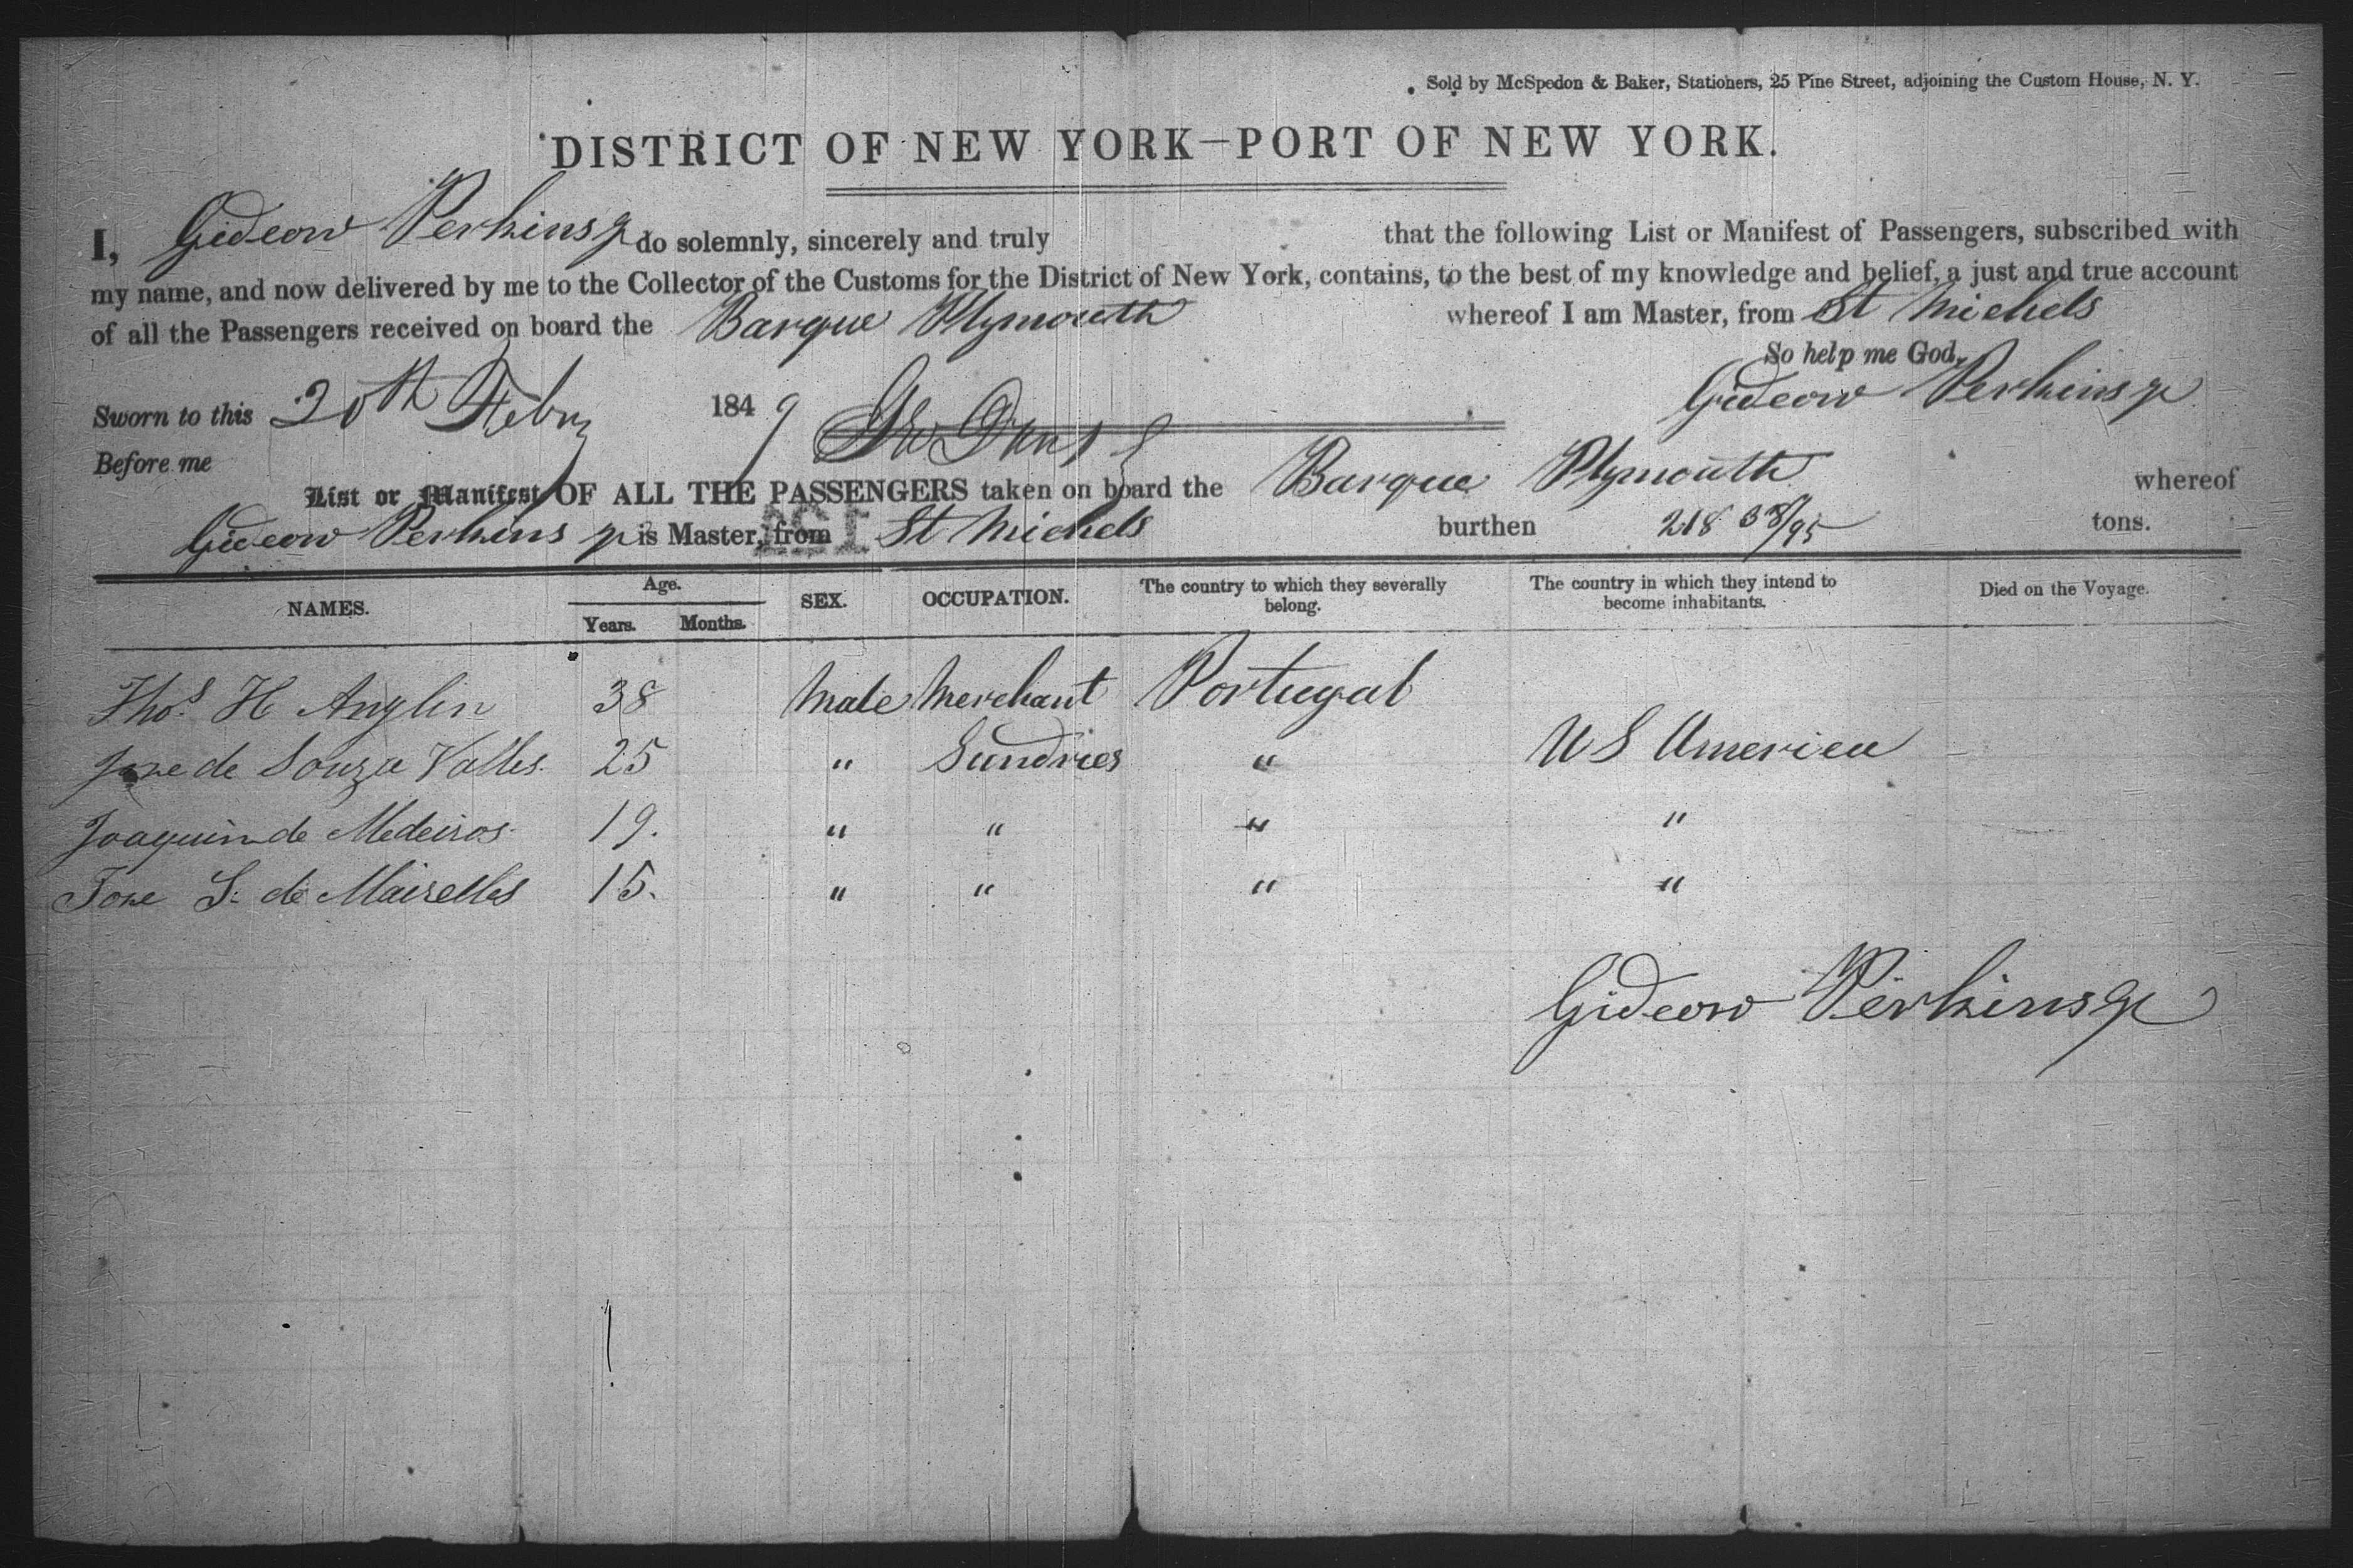 Sold by McSpedon & Baker, Stationers, 25 Pine Street, adjoining the Custom House, N. Y.
DISTRICT OF NEW YORK—PORT OF NEW YORK.
I, Gideon Perkins jr do solemnly, sincerely and truly that the following List or Manifest of Passengers, subscribed with
my name, and now delivered by me to the Collector of the Customs for the District of New York, contains, to the best of my knowledge and belief, a just and true account
of all the Passengers received on board the Barque Plymouth whereof I am Master, from St Michels
So help me God.
Gideon Perkins jr
Sworn to this 20th Feby 1849
Before me
List or Manifest OF ALL THE PASSENGERS taken on board the Barque Plymouth whereof
Gideon Perkins jr is Master, from St Michels burthen 218 38/95 tons.
NAMES. Age. SEX. OCCUPATION. The country to which they severally belong. The country in which they intend to become inhabitants. Died on the Voyage.
Years. Months.
Thos. H Anglin 38 Male Merchant Portugal
Jose de Souza Valles. 25 " Sundries " U S America
Joaquim de Medeiros 19. " " " "
Jose S. de Mairelles 15. " " " "
Gideon Perkins jr